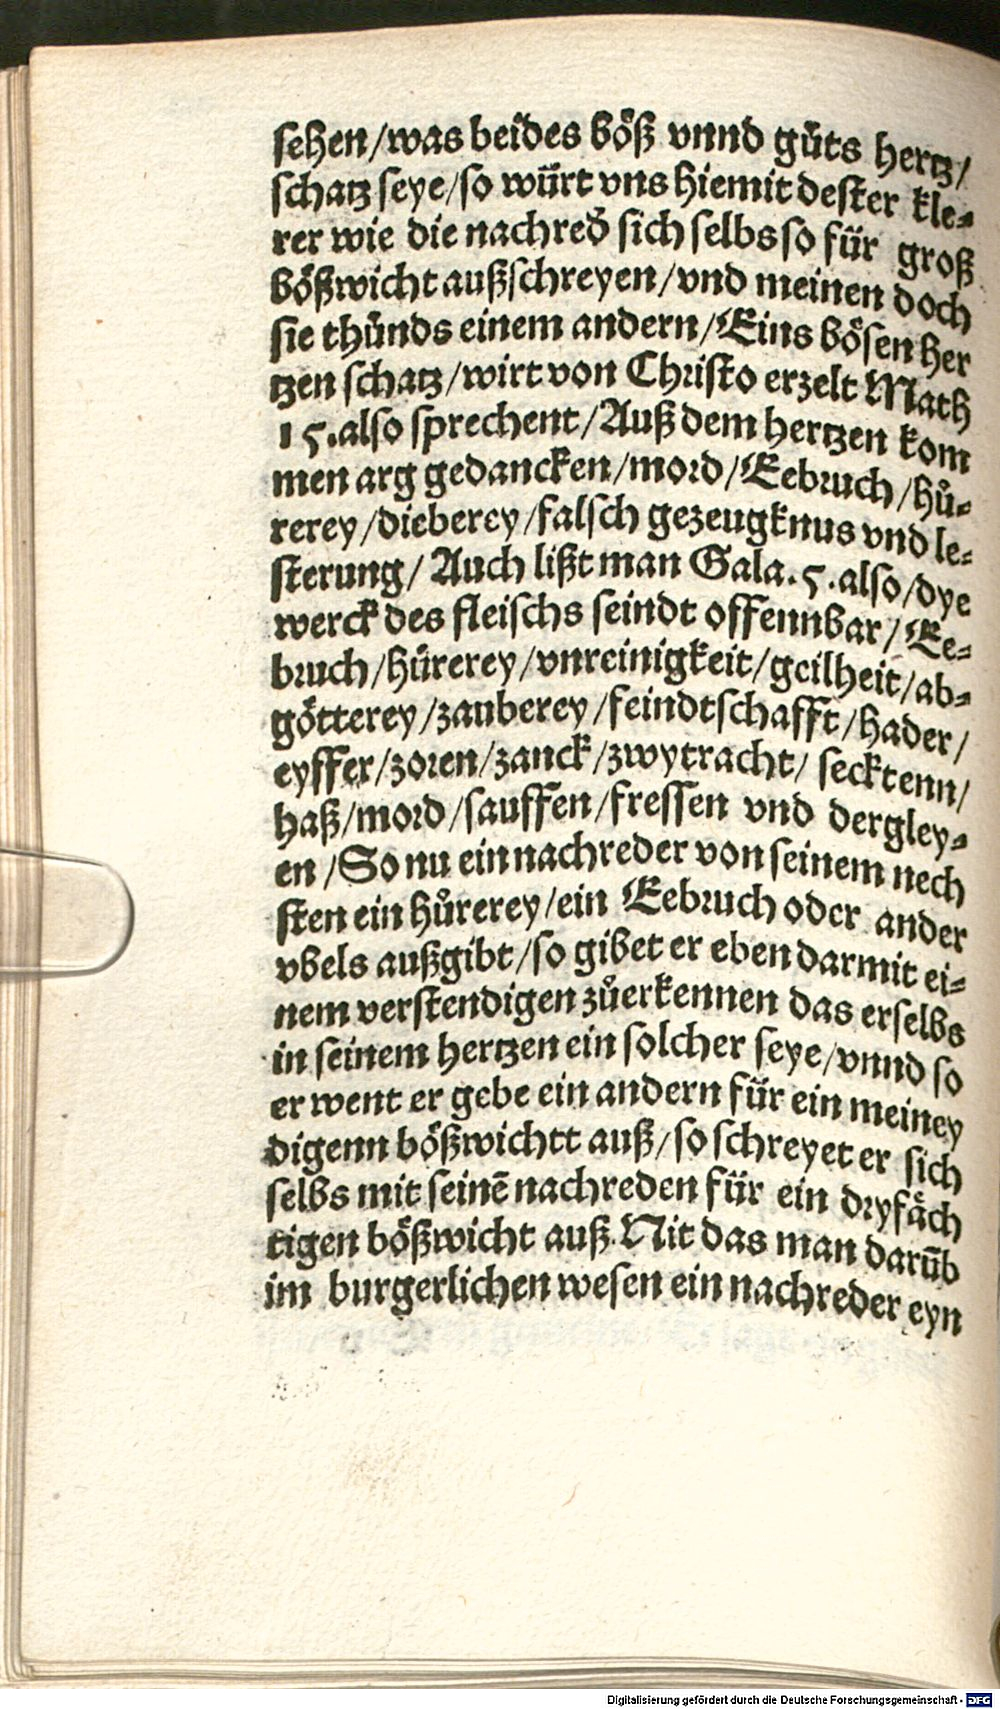 sehen/was beides böß vnnd gůts hertz/
schatz seye/so würt vns hiemit dester kle-
rer wie die nachred̕ sich selbs so für groß
bößwicht außschreyen/vnd meinen doch
sie thůnds einem andern/Eins bösen her
tzen schatz/wirt von Christo erzelt Math
15.also sprechent/Auß dem hertzen kom
men arg gedancken/mord/Eebruch/hů-
rerey/dieberey/falsch gezeugknus vnd le-
sterung/ Auch lißt man Gala.5.also/dye
werck des fleischs seindt offennbar/Ee-
bruch/hůrerey/vnreinigkeit/geilheit/ab-
götterey/zauberey/feindtschafft/hader/
eyffer/zoren/zanck/zwytracht/ secktenn/
haß/mord/sauffen/fressen vnd dergley-
en/So nu ein nachreder von seinem nech
sten ein hůrerey/ein Eebruch oder ander
vbels außgibt/so gibet er eben darmit ei-
nem verstendigen zůerkennen das erselbs
in seinem hertzen ein solcher seye/vnnd so
er went er gebe ein andern für ein meiney
digenn bößwichtt auß/so schreyet er sich
selbs mit seinē nachreden für ein dryfäch
tigen bößwicht auß.Nit das man darūb
im burgerlichen wesen ein nachreder eyn
Digitalisierung gefördert durch die Deutsche Forschungsgemeinschaft - DFG